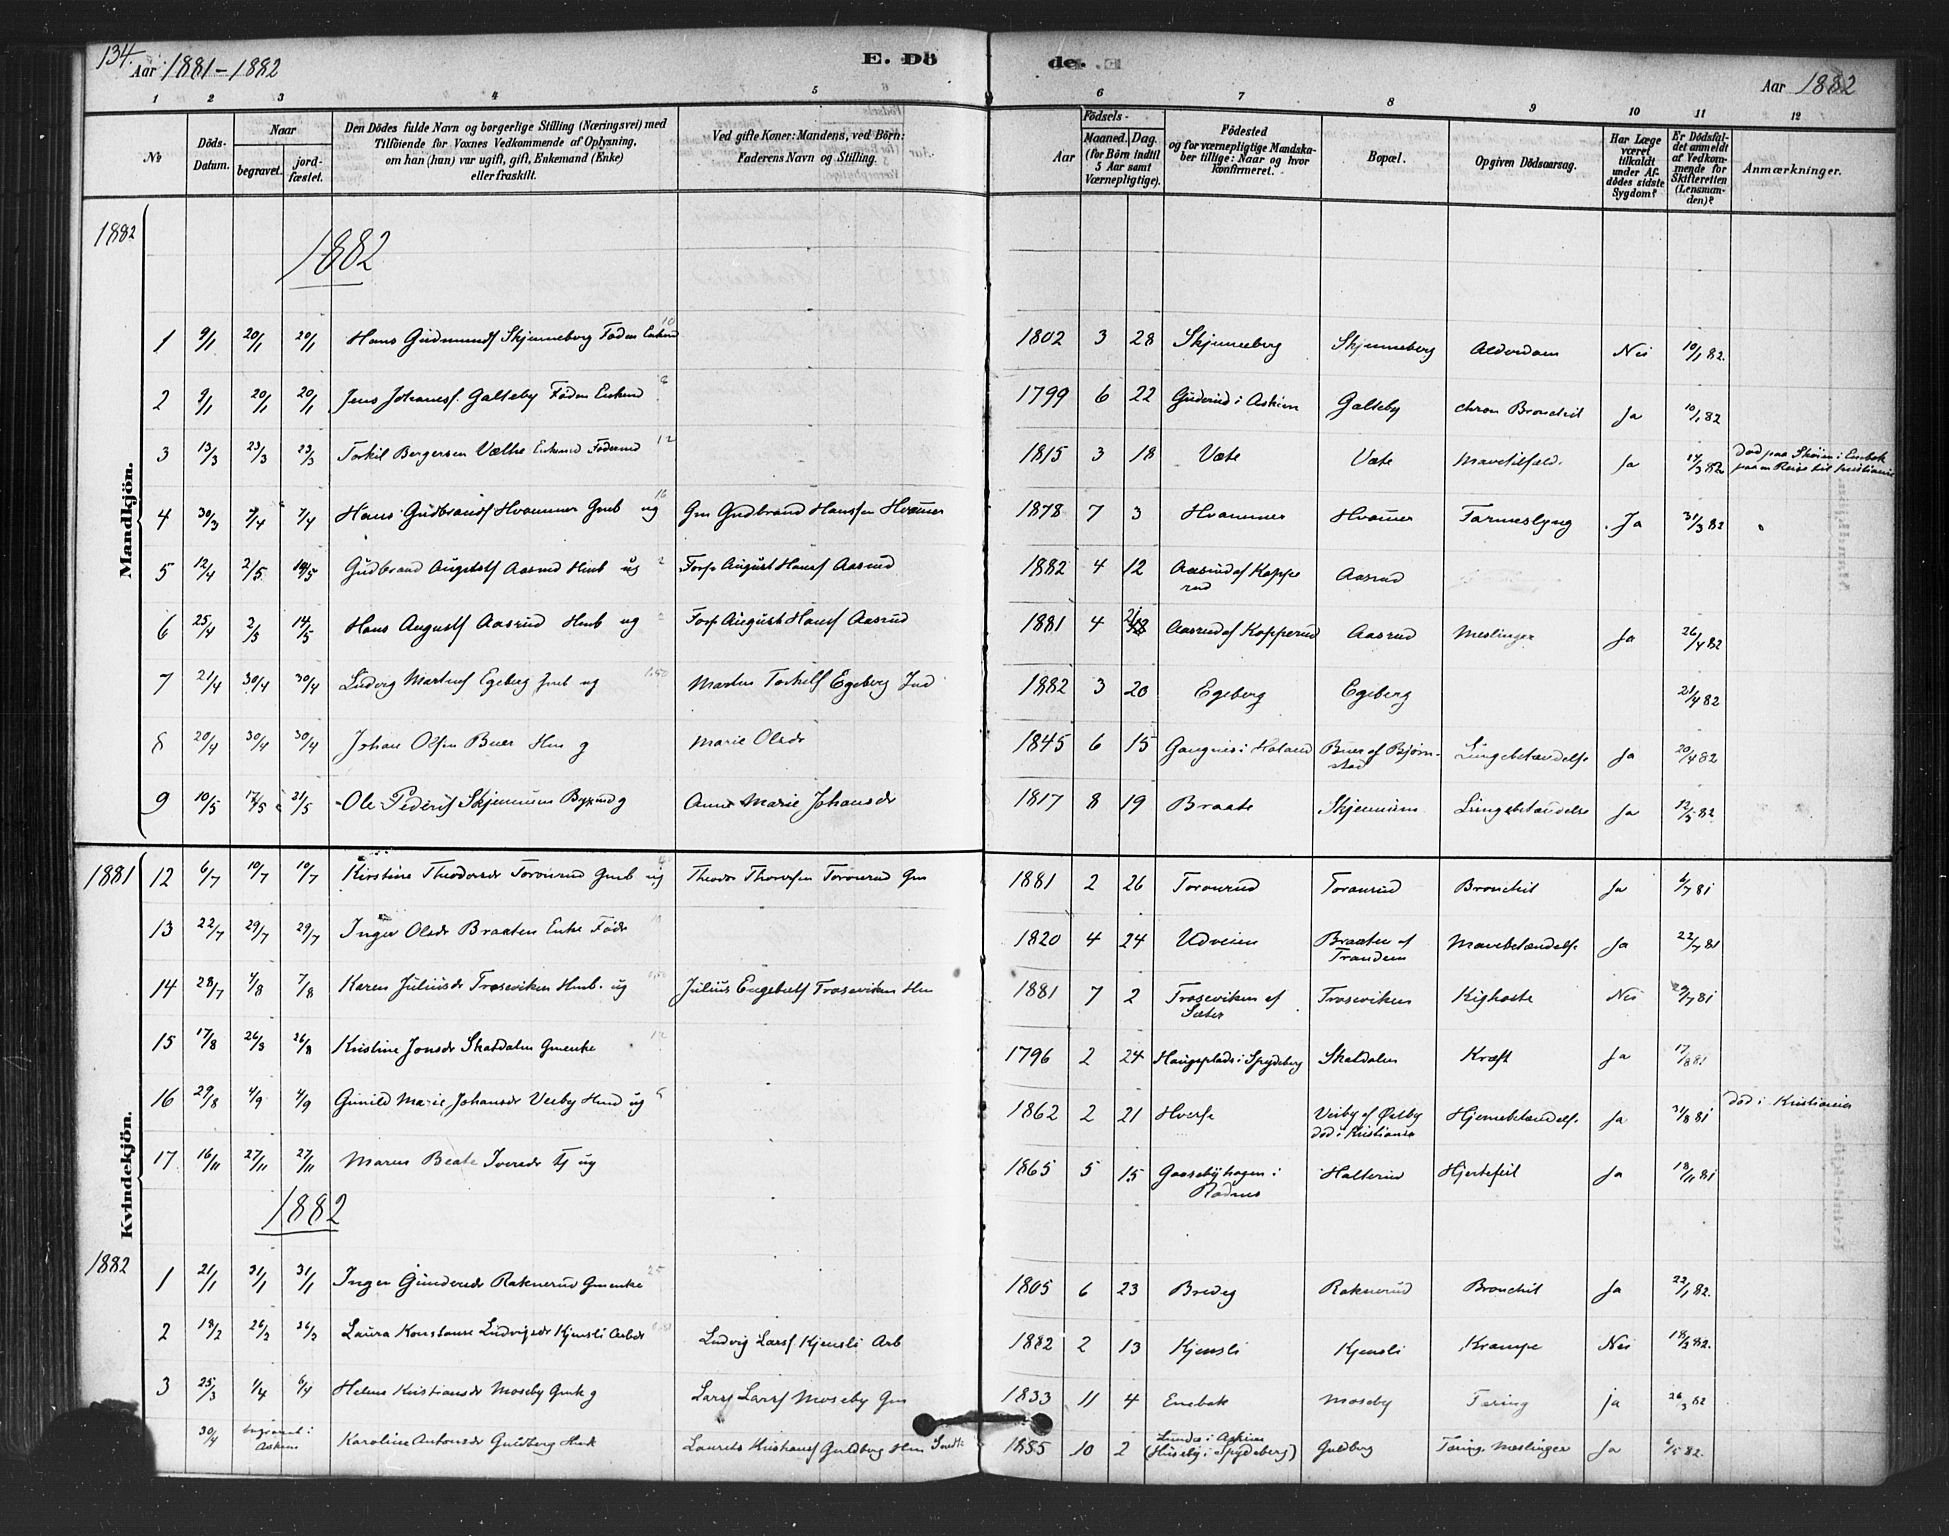 134.
Aar 1881-1882
E. Dö
de.
Aar 1882
1 2 3 4 5 6 7 8 9 10 11 12
No
Döds-Datum.
Naar
begravet.
jord-fæstet.
Den Dödes fulde Navn og borgerlige Stilling (Næringsvei) med
Tilföiende for Voxnes Vedkommende af Oplysning,
om han (hun) var ugift, gift, Enkemand (Enke)
eller fraskilt.
Ved gifte Koner: Mandens, ved Börn:
Faderens Navn og Stilling.
Födsels-
Aar
Maaned. Dag.
(for Börn indtil
5 Aar samt
Værnepligtige).
Födested
og for værnepligtige Mandska-
ber tillige: Naar og hvor
konfirmeret.
Bopæl.
Opgiven Dödsaarsag.
Har Læge
været
tilkaldt
under Af-
dödes sidste
Sygdom?
Er Dödsfal-
det anmeldt
af Vedkom-
mende for
Skifteretten
(Lensman-
den)?
Anmærkninger.
1882
Mandkjön.
1882
1 9/1 20/1 20/1 Hans Gudmundsf Skjønneberg Föder Enkemd 1802 3 28 Skjønneberg Skjønneberg Alderdom Nei 10/1 82.
2 9/1 20/1 20/1 Jens Johannesf. Galteby Föder Enkemd 1799 6 22 Guderud i Askim Galteby chron Bronchit Ja 10/1 82
3 13/3 23/3 23/3 Torkil Bergersen Væthe Enkemd Föderaad 12 1815 3 18 Væte Væte Mavetilfæld. Ja 17/3 82 Död paa i Enebak
paa en Reise til Kristiania
4 30/3 7/4 7/4 Hans Gudbrandsf Hvammer Gmb ug 16 Gm Gudbrand Hanssen Hvam̄er 1878 7 3 Hvammer Hvam̄er Tarmeslyng Ja 31/3 82
5 12/4 2/5 14/5 Gudbrand Augustsf Aasrud Hmb ug 2 Forp August Hansf Aasrud 1882 4 12 Aasrud af Koppe
rud Aasrud
6 25/4 2/5 14/5 Hans Augustf Aasrud Hmb ug Forp August Hansf Aasrud 1881 4 Aasrud af Kopperud Aasrud Meslinger Ja 26/4 82
7 21/4 30/4 30/4 Ludvig Martinsf Egeberg Inb ug 1.50 Martin Torkelsf Egeberg Ind 1882 3 20 Egeberg Egeberg 21/4 82
8 20/4 30/4 30/4 Johan Olsen Buer Hm g Marie Olsdr 1845 6 15 Gangnæs i Høland Buer af Bjørn-
stad Lungebetændelse Ja 20/4 82
9 10/5 17/5 21/5 Ole Pedersf Skjennum g Anne Marie Johansdr 1817 8 19 Braate Skjennum Lungebetændelse Ja 12/5 82
1881
Kvindekjön.
12 6/7 10/7 10/7 Kirstine Theodorsdr Toronrud Gmb ug Theodor Thoresfen Toronrud Gm 1881 2 26 Toronrud Toronrud Bronchit Ja 6/7 81
13 22/7 29/7 29/7 Inger Olsdr Braaten Enke Födr 1820 4 24 Udveien Braaten af
Trandem Mavebetændelse Ja 22/7 81
14 28/7 4/8 7/8 Karen Juliusdr Troseviken Hmb. ug Julius Engebretsf Troseviken Hm 1881 7 2 Troseviken af
Sæter Troseviken Kighoste Nei 29/7 81
15 17/8 26/8 26/8 Kristine Jonsdr Skatdalen Gmenke 12 1796 2 24 Haugsplads i Spydeberg Skatdalen Kræft Ja 17/8 81
16 29/8 4/9 4/9 Gunild Marie Johansdr Vesby Hmd ug 1862 2 21 Hverse Vesby af Østby
död i Kristiania Hjernebetændelse Ja 31/8 81 död i Kristiania
17 16/11 27/11 27/11 Maren Beate Iversdr Tj ug 1865 5 15 Gaasebyhagen i
Rødnes Halterud Hjertefeil Ja 18/11 81
1882
1882
1 21/1 31/1 31/1 Inger Gundersdr Raknerud Gmenke 25 1805 6 23 Bredeg Raknerud Bronchit Ja 22/1 82.
2 18/2 26/2 26/3 Laura Konstanse Ludvigsdr Kjensli Arbdr Ludvig Larsf Kjensli Arb 1882 2 13 Kjensli Kjensli Krampe Nei 18/2 82.
3 25/3 1/4 6/4 Helene Kristiansdr Moseby Gmk g Lars Larsf Moseby Gm 1833 11 4 Enebak Moseby Tæring ja 26/3 82
30/4 begravet i
Askim Karoline Antonsdr Guldberg Hmk Laurits Kristiansf Guldberg Hm Smed 1855 10 2 Lunde i Askim
(Huseby i Spydeberg) Guldberg Tæring, Meslinger Ja 6/5 82.